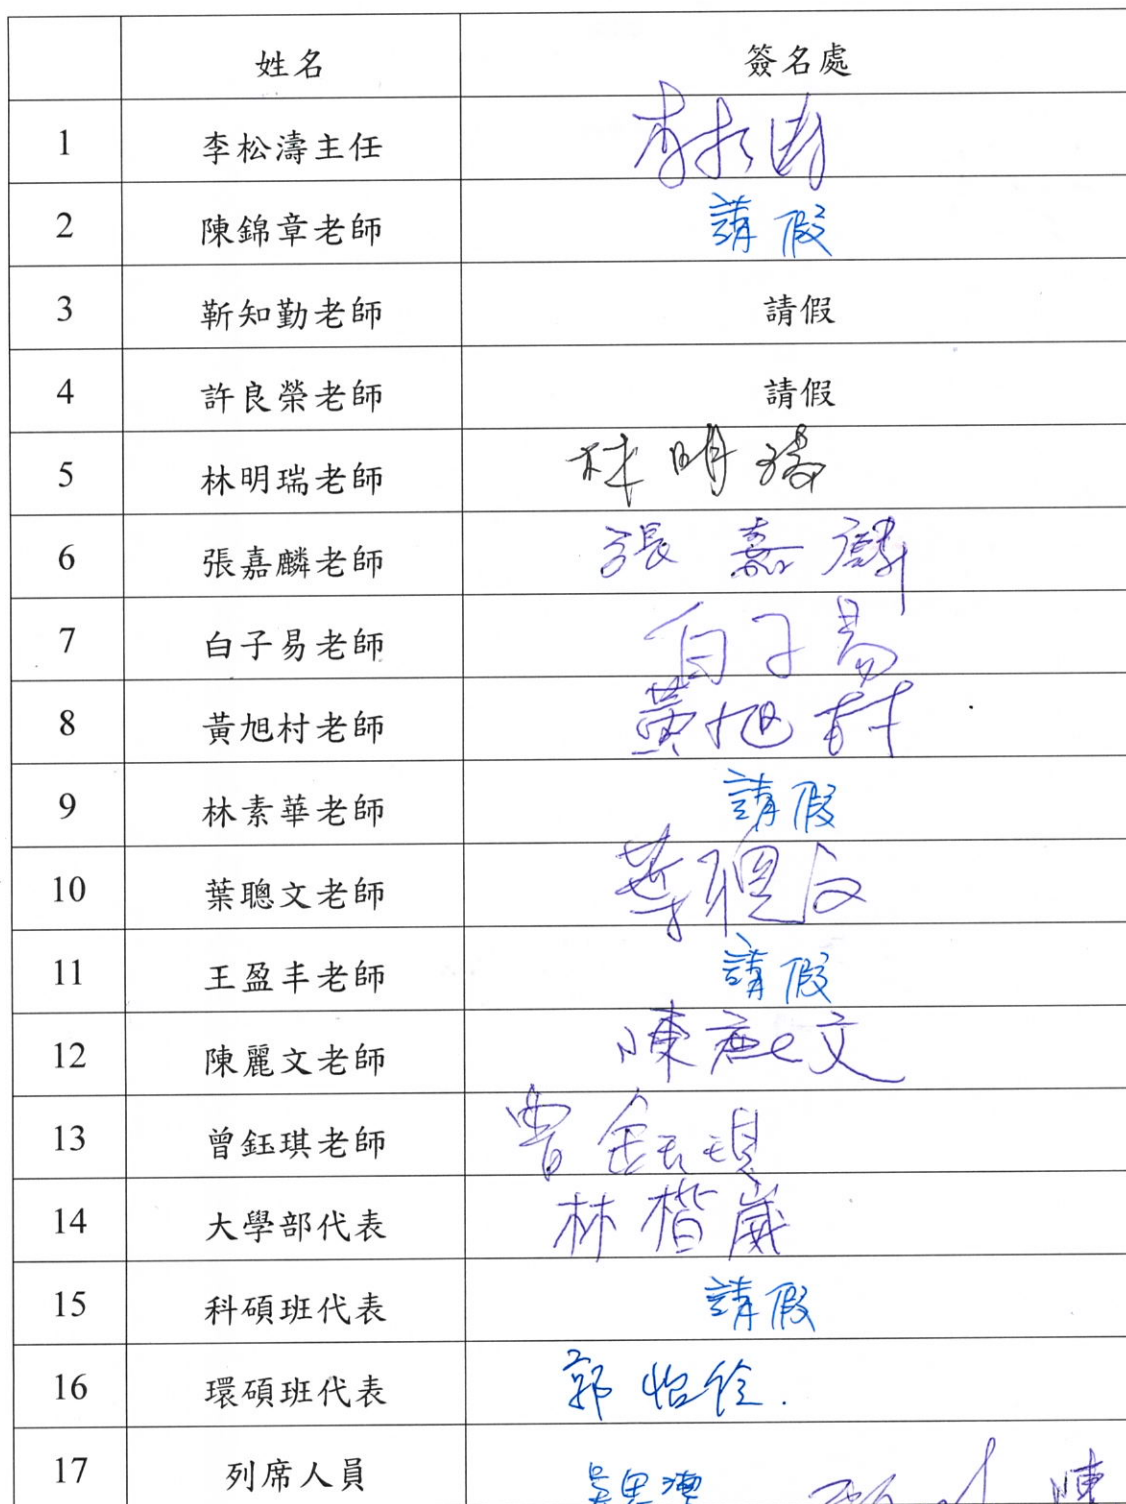 姓名 簽名處
1 李松濤主任 李松濤
2 陳錦章老師 請假
3 靳知勤老師 請假
4 許良榮老師 請假
5 林明瑞老師 林明瑞
6 張嘉麟老師 張嘉麟
7 白子易老師 白子易
8 黃旭村老師 黃旭村
9 林素華老師 請假
10 葉聰文老師 葉聰文
11 王盈丰老師 請假
12 陳麗文老師 陳麗文
13 曾鈺琪老師 曾鈺琪
14 大學部代表 林楷崴
15 科碩班代表 請假
16 環碩班代表 郭怡伶.
17 列席人員 陳